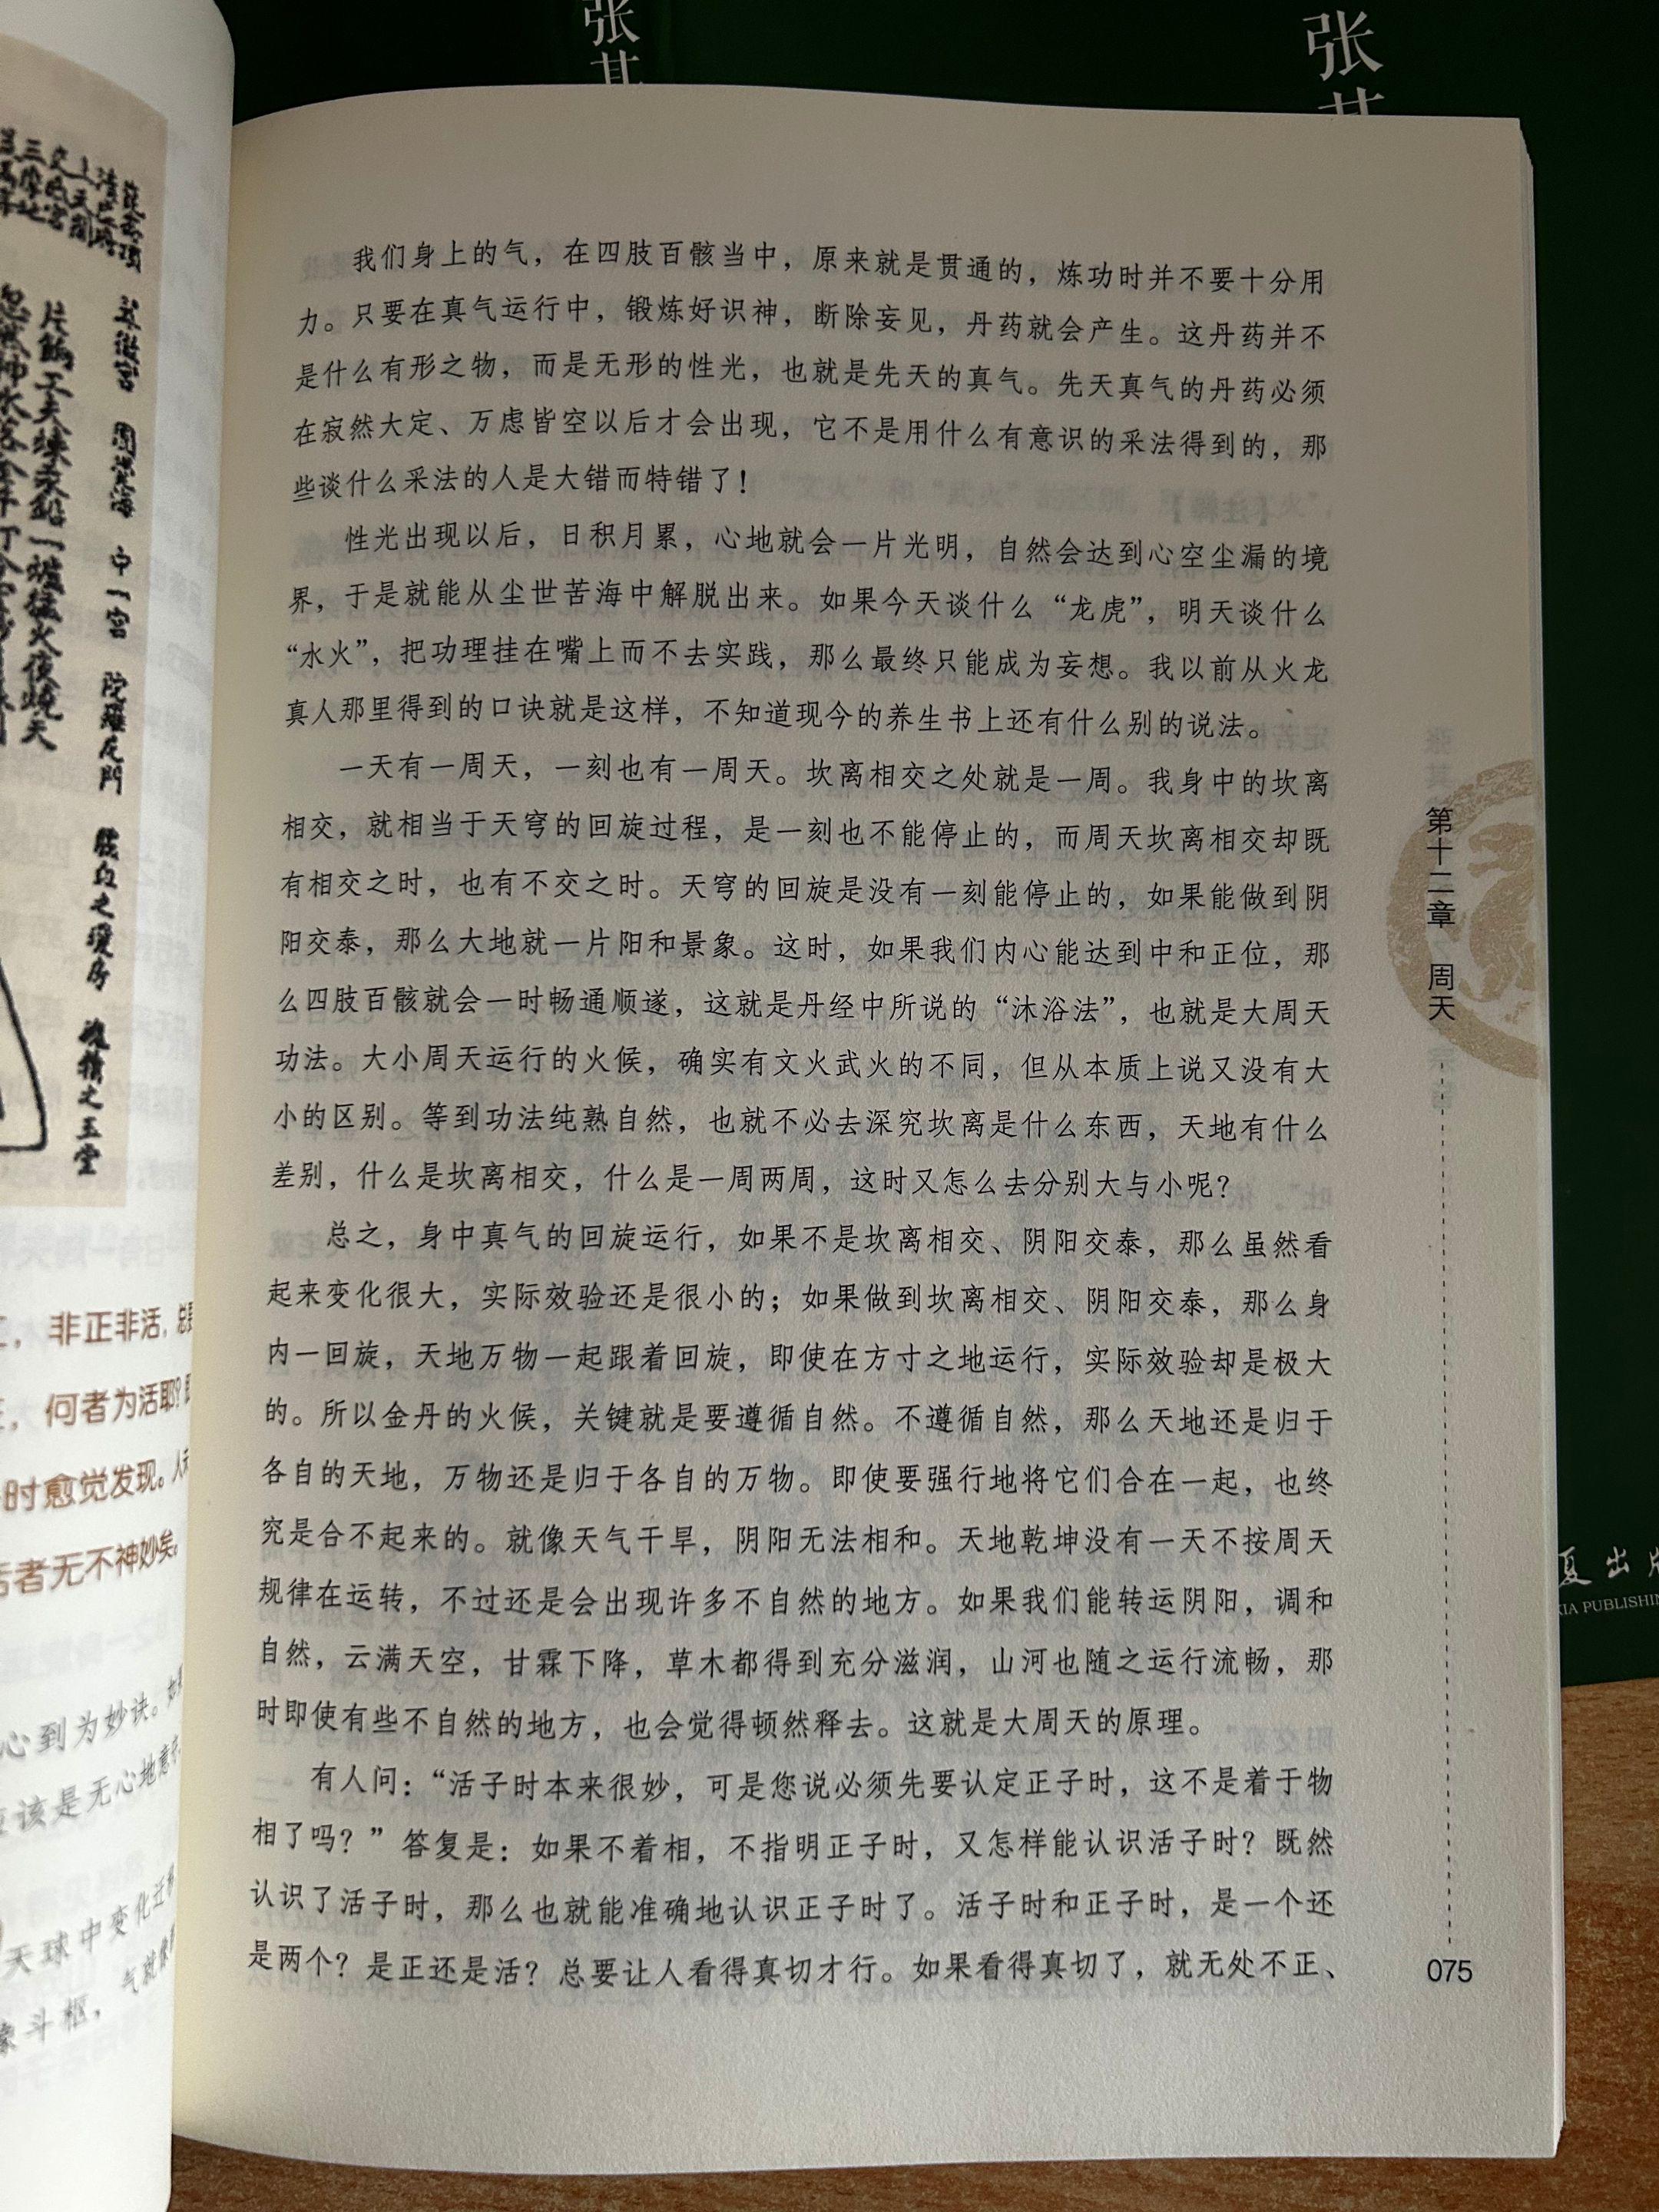 张其
张其
我们身上的气，在四肢百骸当中，原来就是贯通的，炼功时并不要十分用
力。只要在真气运行中，锻炼好识神，断除妄见，丹药就会产生。这丹药并不
是什么有形之物，而是无形的性光，也就是先天的真气。先天真气的丹药必须
在寂然大定、万虑皆空以后才会出现，它不是用什么有意识的采法得到的，那
些谈什么采法的人是大错而特错了！
性光出现以后，日积月累，心地就会一片光明，自然会达到心空尘漏的境
界，于是就能从尘世苦海中解脱出来。如果今天谈什么“龙虎”，明天谈什么
“水火”，把功理挂在嘴上而不去实践，那么最终只能成为妄想。我以前从火龙
真人那里得到的口诀就是这样，不知道现今的养生书上还有什么别的说法。
一天有一周天，一刻也有一周天。坎离相交之处就是一周。我身中的坎离
相交，就相当于天穹的回旋过程，是一刻也不能停止的，而周天坎离相交却既
有相交之时，也有不交之时。天穹的回旋是没有一刻能停止的，如果能做到阴
阳交泰，那么大地就一片阳和景象。这时，如果我们内心能达到中和正位，那
么四肢百骸就会一时畅通顺遂，这就是丹经中所说的“沐浴法”，也就是大周天
功法。大小周天运行的火候，确实有文火武火的不同，但从本质上说又没有大
小的区别。等到功法纯熟自然，也就不必去深究坎离是什么东西，天地有什么
差别，什么是坎离相交，什么是一周两周，这时又怎么去分别大与小呢？
总之，身中真气的回旋运行，如果不是坎离相交、阴阳交泰，那么虽然看
起来变化很大，实际效验还是很小的；如果做到坎离相交、阴阳交泰，那么身
内一回旋，天地万物一起跟着回旋，即使在方寸之地运行，实际效验却是极大
的。所以金丹的火候，关键就是要遵循自然。不遵循自然，那么天地还是归于
各自的天地，万物还是归于各自的万物。即使要强行地将它们合在一起，也终
究是合不起来的。就像天气干旱，阴阳无法相和。天地乾坤没有一天不按周天
规律在运转，不过还是会出现许多不自然的地方。如果我们能转运阴阳，调和
自然，云满天空，甘霖下降，草木都得到充分滋润，山河也随之运行流畅，那
时即使有些不自然的地方，也会觉得顿然释去。这就是大周天的原理。
有人问：“活子时本来很妙，可是您说必须先要认定正子时，这不是着于物
相了吗？”答复是：如果不着相，不指明正子时，又怎样能认识活子时？既然
认识了活子时，那么也就能准确地认识正子时了。活子时和正子时，是一个还
是两个？是正还是活？总要让人看得真切才行。如果看得真切了，就无处不正、
第十二章 周天
075
，非正非活，总
，何者为活耶？
时愈觉发现。
者无不神妙矣。
心到为妙诀。
应该是无心地意
天球中变化迁
象斗枢，
夏出版
XIA PUBLISHIN